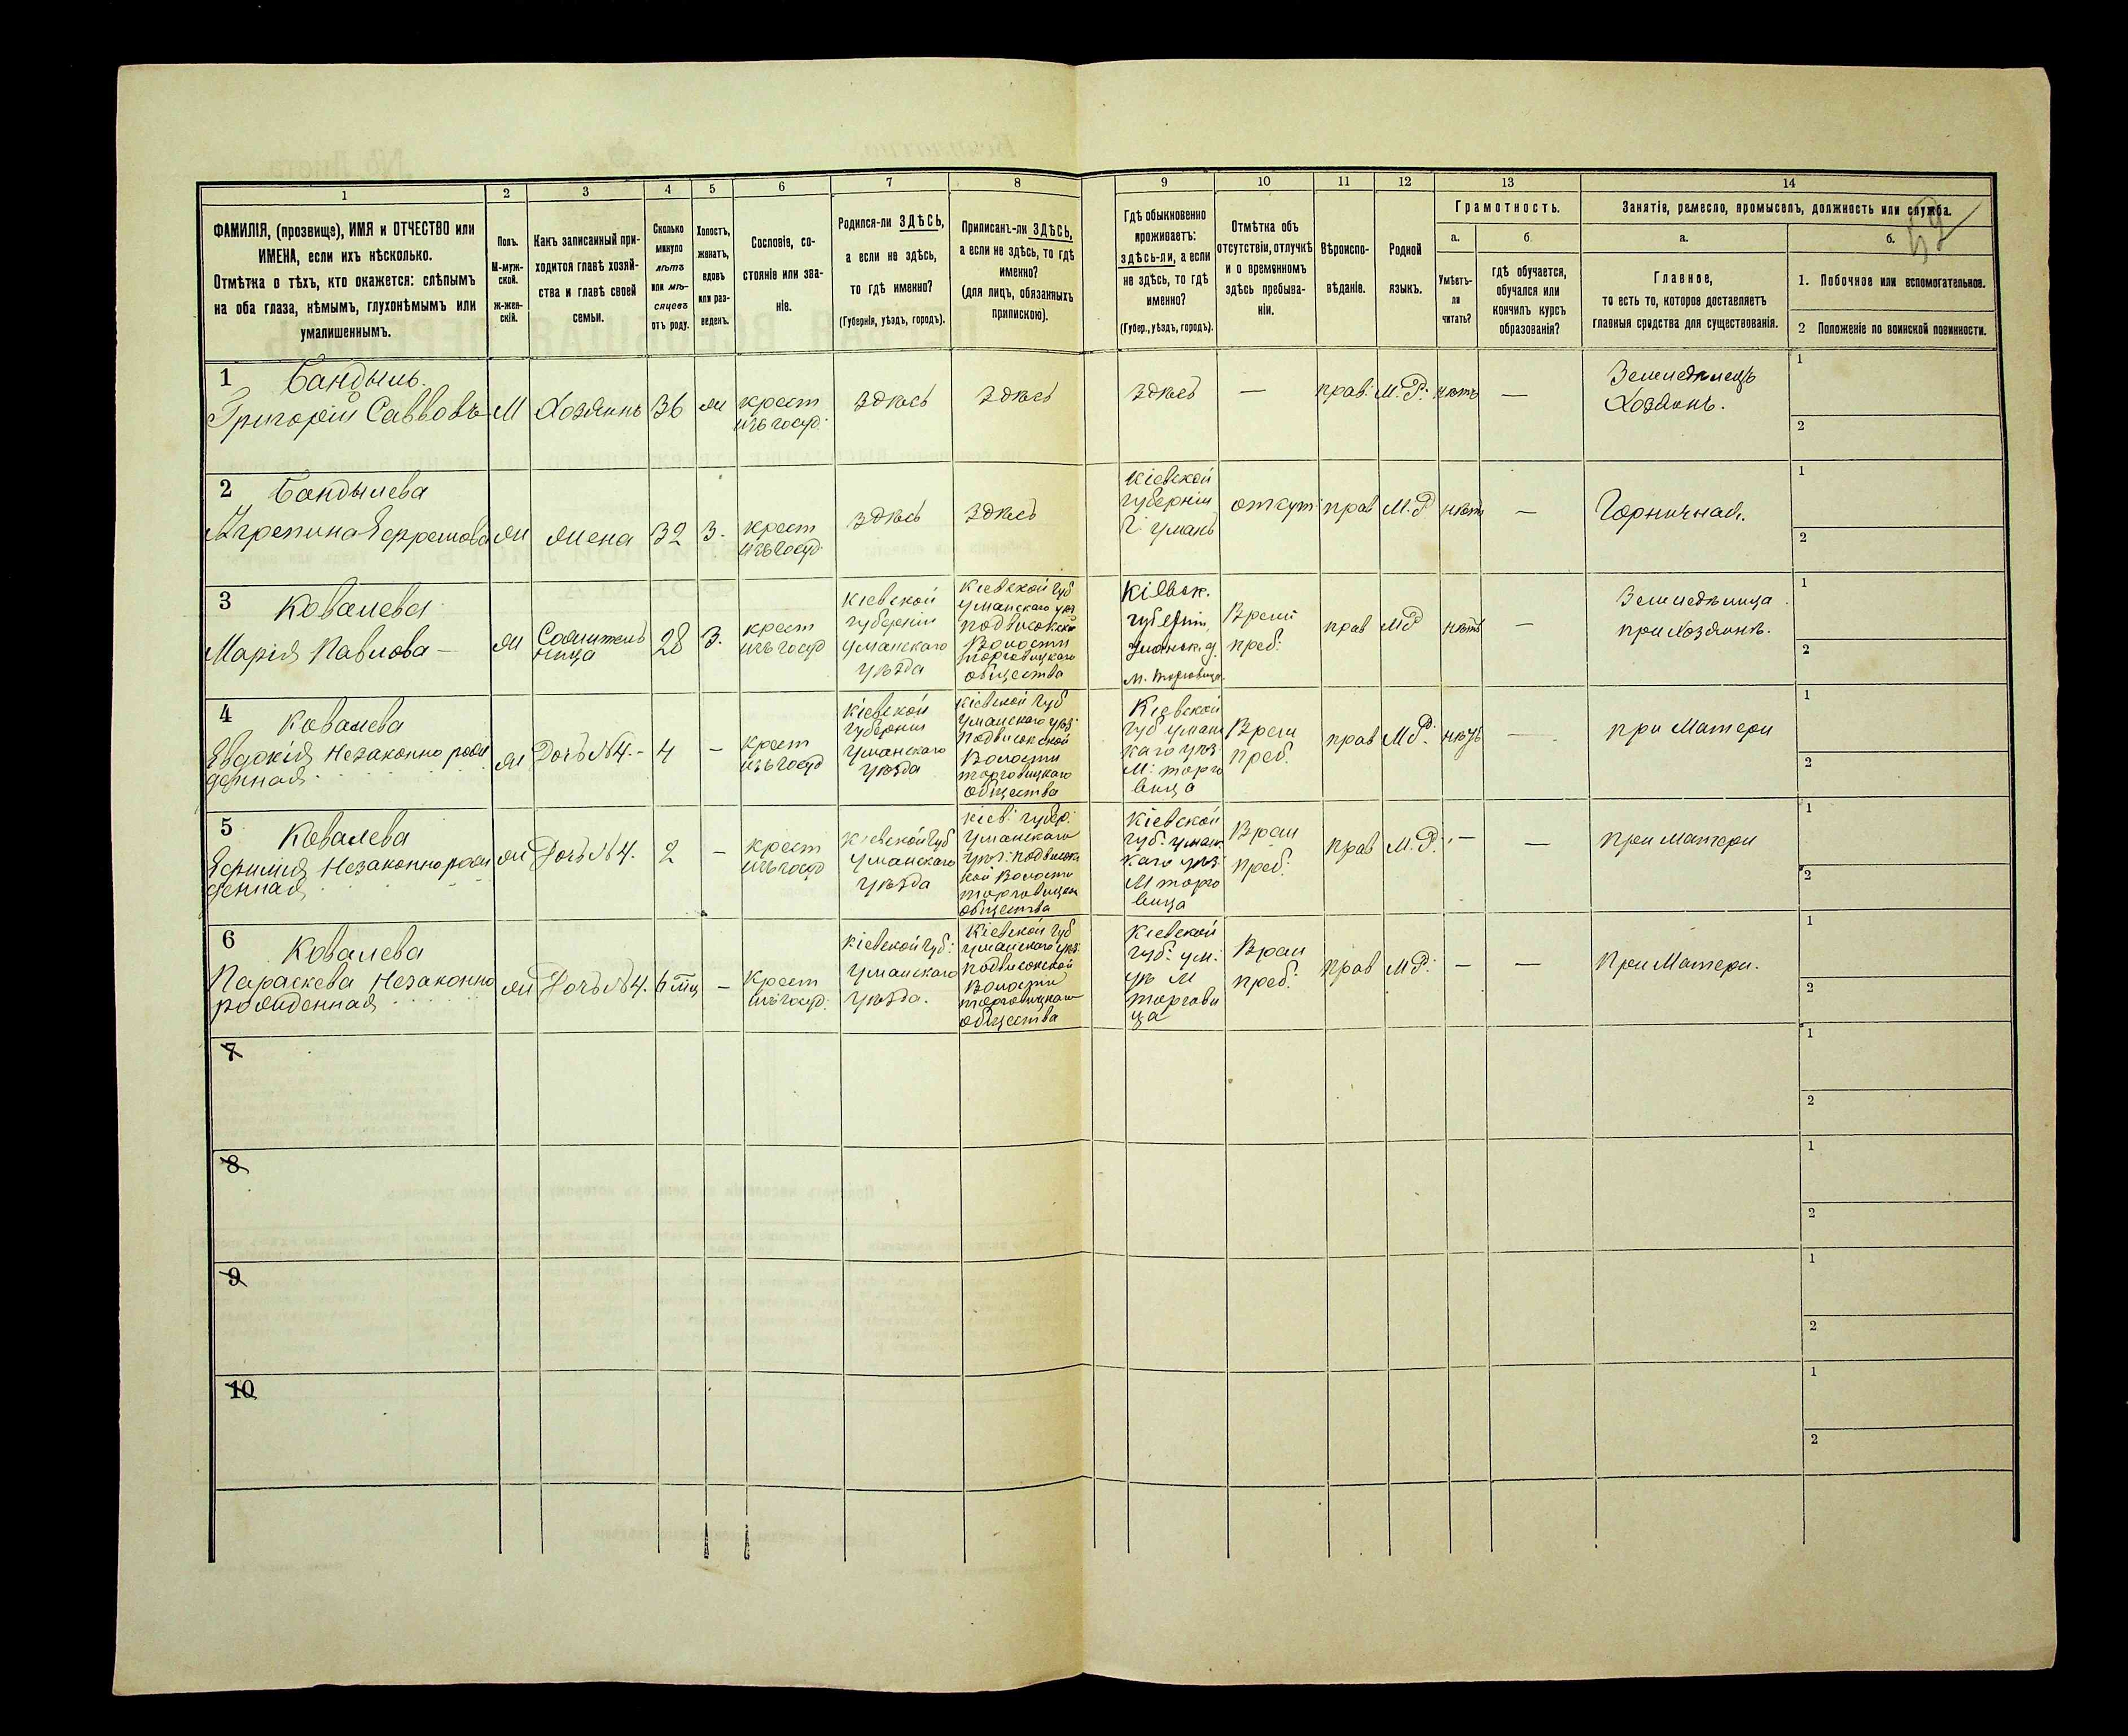 1 2 3 4 5 6 7 8 9 10 11 12 13 14
ФАМИЛІЯ, (прозвище), ИМЯ и ОТЧЕСТВО или
ИМЕНА, если ихъ нѣсколько.
Отмѣтка о тѣхъ, кто окажется: слѣпымъ
на оба глаза, нѣмымъ, глухонѣмымъ или
умалишеннымъ.
Полъ.
М-муж-
ской.
Ж-жен-
скій.
Какъ записанный при-
ходится главѣ хозяй-
ства и главѣ своей
семьи.
Сколько
минуло
лѣтъ
или мѣ-
сяцевъ
отъ роду.
Холостъ,
женатъ,
вдовъ
или раз-
веденъ.
Сословіе, со-
стояніе или зва-
ніе.
Родился-ли ЗДѢСЬ,
а если не здѣсь,
то гдѣ именно?
(Губернія, уѣздъ, городъ).
Приписанъ-ли ЗДѢСЬ,
а если не здѣсь, то гдѣ
именно?
(для лицъ, обязанныхъ
припискою).
Гдѣ обыкновенно
проживаетъ:
здѣсь-ли, а если
не здѣсь, то гдѣ
именно?
(Губер., уѣздъ, городъ).
Отмѣтка объ
отсутствіи, отлучкѣ
и о временномъ
здѣсь пребыва-
ніи.
Вѣроиспо-
вѣданіе.
Родной
языкъ.
Грамотность.
а.
Умѣетъ-
ли
читать?
б.
гдѣ обучается,
обучался или
кончилъ курсъ
образованія?
Занятіе, ремесло, промыселъ, должность или служба.
а.
Главное,
то есть то, которое доставляетъ
главныя средства для существованія.
б.
1. Побочное или вспомогательное.
2 Положеніе по воинской повинности.
1 Бандыль.
Григорій Саввовъ
М
Хозяинъ
36
ж
крест
изъ госуд.
Здѣсь
Здѣсь
Здѣсь
—
прав.
М. Р.
нѣтъ
—
Земледѣлецъ
Хозяинъ.
1
2
2 Бандылева
Агрепина Ефремова
ж
жена
32
З.
крест
изъ госуд.
Здѣсь
Здѣсь
Кіевской
губерніи
Г. Умань
отсут
прав
М. Р
нѣтъ
—
Горничная.
1
2
3 Ковалева
Марія Павлова —
ж
Сожитель
ница
28
З.
крест
изъ госуд
Кіевской
губерніи
уманскаго
уѣзда
Кіевской губ
уманскаго уѣз
подвисокской
Волости
торговицкаго
общества
Кіевск.
губерніи,
Уманск. у.
м. Торговица.
Врем
преб:
прав
МР
нѣтъ
—
Земледѣлица
при хозяинѣ.
1
2
4 Ковалева
Евдокія Незаконно рож
денная
ж
Дочь № 4.-
4
—
крест
изъ госуд
Кіевской
губерніи
Уманскаго
уѣзда
Кіевской губ
уманскаго уѣз:
подвисокской
Волости
торговицкаго
общества
Кіевской
губ уман
каго уѣз
М. торго
вица
Врем
преб.
прав
МР.
нѣтъ
—
при Матери
1
2
5 Ковалева
Ефимія Незаконно рож
денная
ж
Дочь № 4.
2
—
крест
изъ госуд
Кіевской губ
Уманскаго
уѣзда
Кіев: губер:
Уманскаго
уѣз: подвисокс
кой Волости
торговицкаго
общества
Кіевской
губ: уман
каго уѣз
М торго
вица
Врем
преб:
прав
М. Р.
—
—
при Матери
1
2
6 Ковалева
Параскева Незаконно
рожденная
ж
Дочь № 4.
6 мц
—
крест
изъ госуд.
Кіевской губ:
Уманскаго
уѣзда.
Кіевской губ
уманскаго уѣз
подвисокской
Волости
торговицкаго
общества
Кіевской
губ: ум:
уѣ М
торгови
ца
Врем
преб:
прав
МР:
—
—
При Матери.
1
2
7
1
2
8
1
2
9
1
2
10
1
2